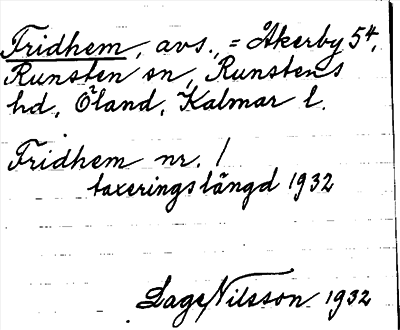 Fridhem, avs., = Åkerby 5⁴,
Runsten sn, Runstens
hd, Öland, Kalmar l.
Fridhem nr. 1
taxeringslängd 1932
Lage Nilsson 1932